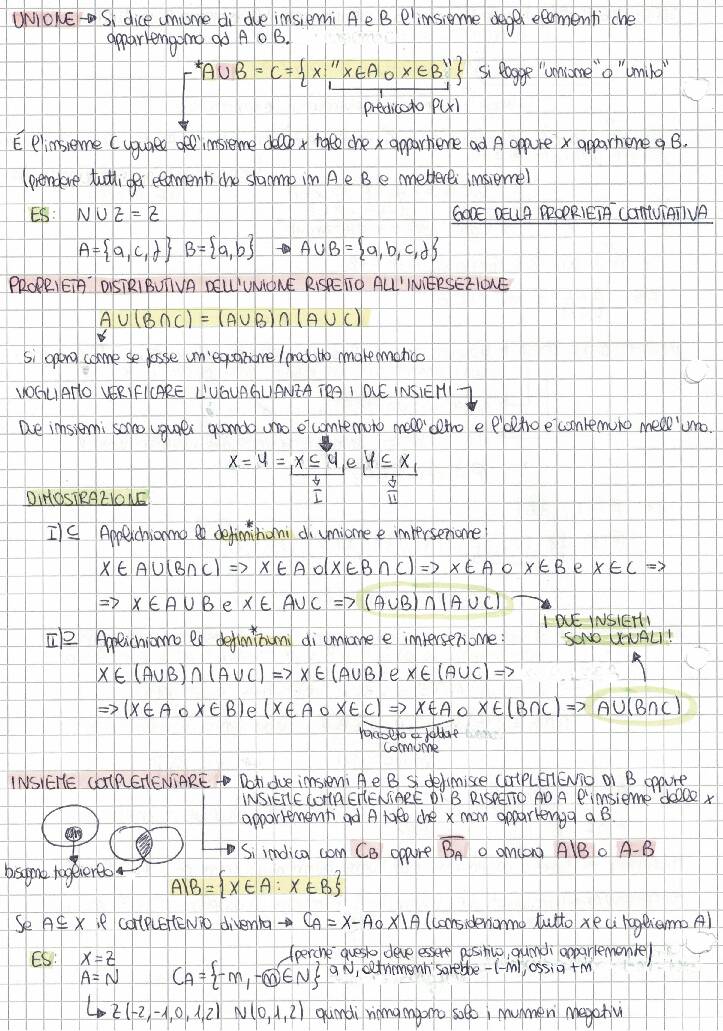 UNIONE → Si dice unione di due insiemi A e B l'insieme degli elementi che
appartengono ad A o B.
*A∪B = C = { x: "x∈A o x∈B" } si legge "unione" o "unito"
predicato P(x)
È l'insieme C uguale all'insieme delle x tale che x appartiene ad A oppure x appartiene a B.
(prendere tutti gli elementi che stanno in A e B e metterli insieme)
ES: N ∪ Z = Z
GODE DELLA PROPRIETÀ COMMUTATIVA
A={a,c,f} B={a,b} → A∪B={a,b,c,f}
PROPRIETÀ DISTRIBUTIVA DELL'UNIONE RISPETTO ALL'INTERSEZIONE
A∪(B∩C) = (A∪B)∩(A∪C)
Si opera come se fosse un'equazione/prodotto matematico
VOGLIAMO VERIFICARE L'UGUAGLIANZA TRA I DUE INSIEMI
Due insiemi sono uguali quando uno è contenuto nell'altro e l'altro è contenuto nell'uno.
X = Y = X ⊆ Y e Y ⊆ X
I II
DIMOSTRAZIONE
I) ⊆ Applichiamo le definizioni* di unione e intersezione:
X∈A∪(B∩C) => X∈A o (X∈B∩C) => X∈A o X∈B e X∈C =>
=> X∈A∪B e X∈A∪C => (A∪B)∩(A∪C)
I DUE INSIEMI
SONO UGUALI!
II) ⊇ Applichiamo le definizioni* di unione e intersezione:
X∈(A∪B)∩(A∪C) => X∈(A∪B) e X∈(A∪C) =>
=> (X∈A o X∈B) e (X∈A o X∈C) => X∈A o X∈(B∩C) => A∪(B∩C)
raccolto a fattor
comune
INSIEME COMPLEMENTARE → Dati due insiemi A e B si definisce COMPLEMENTO DI B oppure
INSIEME COMPLEMENTARE DI B RISPETTO AD A l'insieme delle x
appartenenti ad A tale che x non appartenga a B
→ Si indica con CB oppure B̅A o ancora A\B o A-B
bisogna toglierlo
A\B = {X∈A : X∉B}
Se A⊆X il COMPLEMENTO diventa → CA = X-A o X\A (consideriamo tutto X e ci togliamo A)
ES: X = Z
(perché questo deve essere positivo, quindi appartenente)
A = N CA = {-n, -n∈N} a N, altrimenti sarebbe -(-n), ossia +n
↳ Z(-2,-1,0,1,2) N(0,1,2) quindi rimangono solo i numeri negativi